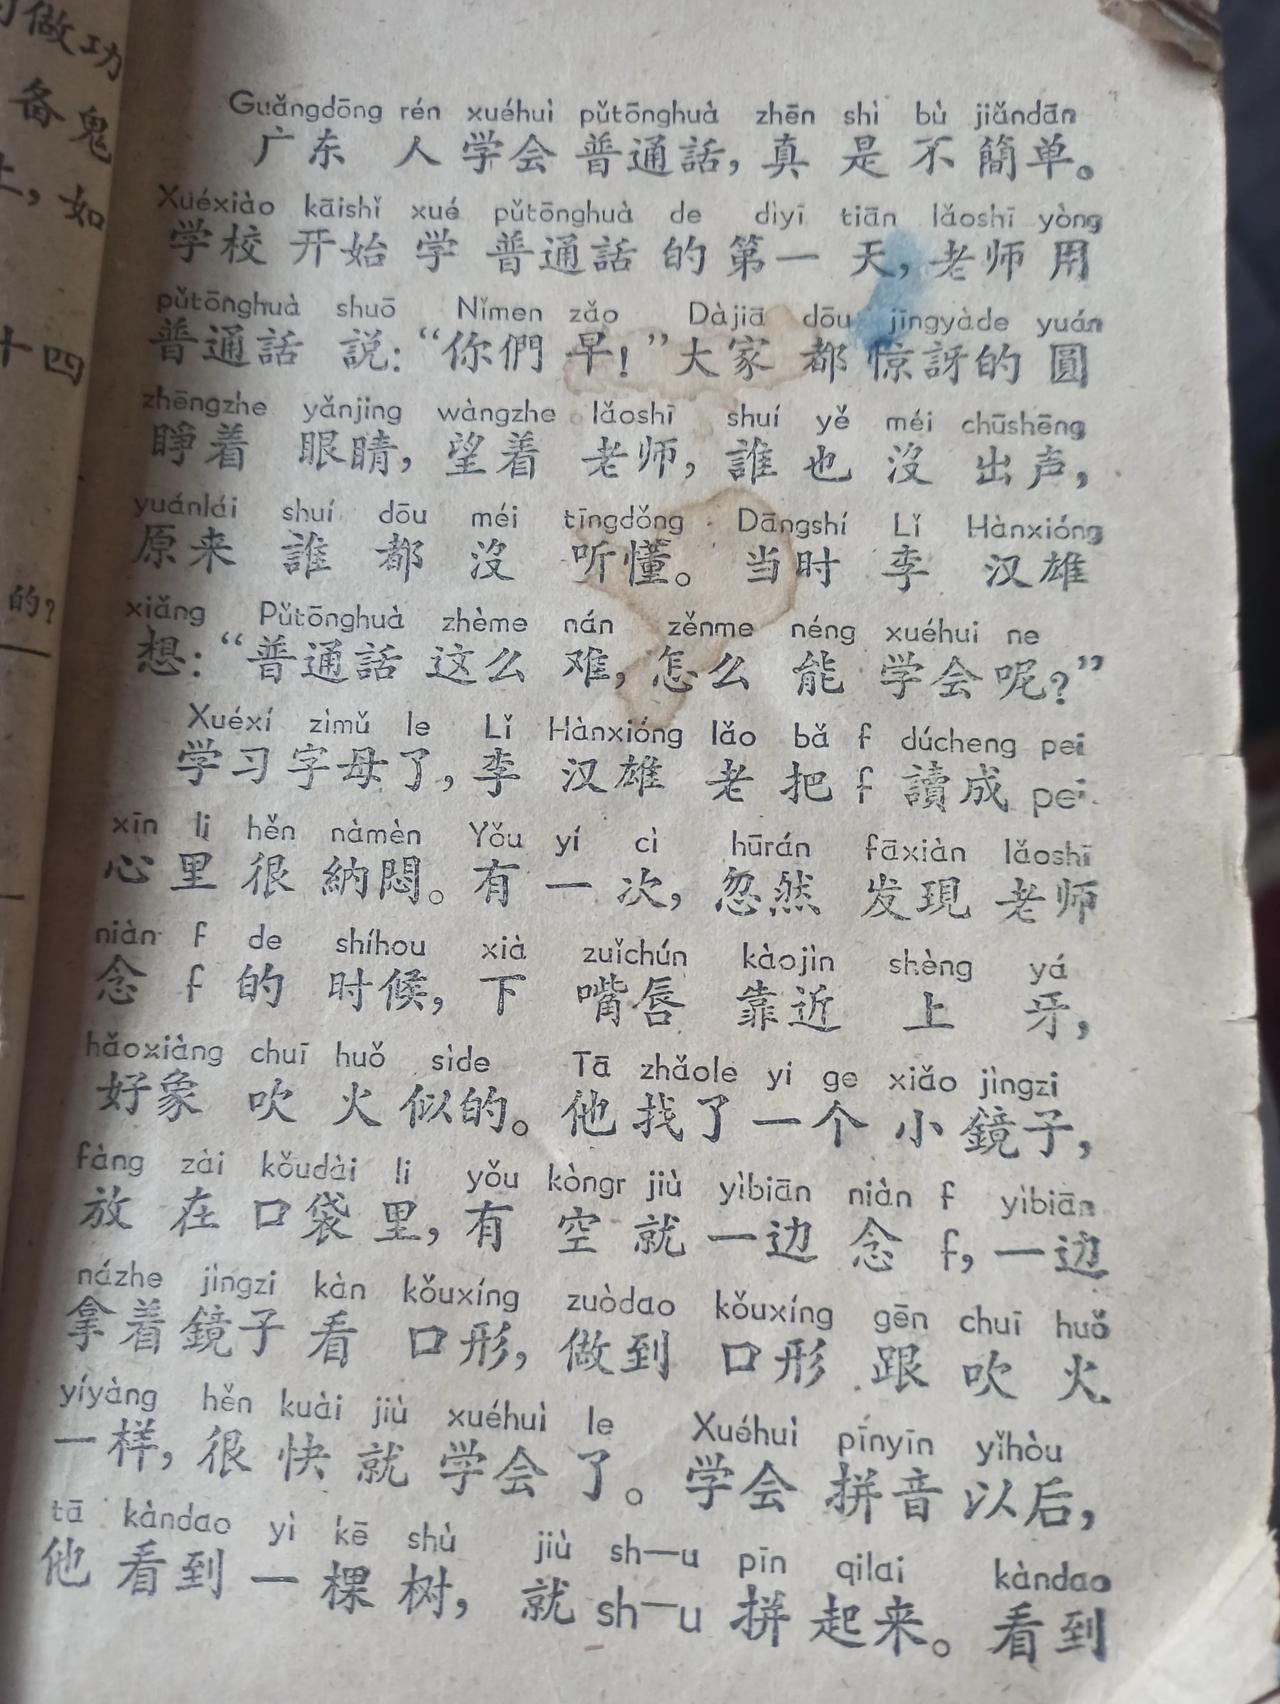 的做功
备鬼
上，如
十四
的？
Guǎngdōng rén xuéhuì pǔtōnghuà zhēn shì bù jiǎndān
广东 人 学会 普通話，真 是 不 簡单。
Xuéxiào kāishǐ xué pǔtōnghuà de dìyī tiān lǎoshī yòng
学校 开始 学 普通話 的 第一 天，老师 用
pǔtōnghuà shuō Nǐmen zǎo Dàjiā dōu jīngyàde yuán
普通話 説：“你們 早！”大家 都 惊訝的 圓
zhēngzhe yǎnjing wàngzhe lǎoshī shuí yě méi chūshēng
睁着 眼睛，望着 老师，誰 也 沒 出声，
yuánlái shuí dōu méi tīngdǒng Dāngshí Lǐ Hànxióng
原来 誰 都 沒 听懂。当时 李 汉雄
xiǎng Pǔtōnghuà zhème nán zěnme néng xuéhui ne
想：“普通話 这么 难，怎么 能 学会 呢？”
Xuéxí zìmǔ le Lǐ Hànxióng lǎo bǎ f dúcheng pei
学习 字母 了，李 汉雄 老 把 f 讀成 pei.
xīn li hěn nàmèn Yǒu yí cì hūrán fāxiàn lǎoshī
心 里 很 納悶。有 一 次，忽然 发現 老师
niàn f de shíhou xià zuǐchún kàojìn shèng yá
念 f 的 时候，下 嘴唇 靠近 上 牙，
hǎoxiàng chuī huǒ sìde Tā zhǎole yi ge xiǎo jìngzi
好象 吹 火 似的。他 找了 一 个 小 鏡子，
fàng zài kǒudài li yǒu kòngr jiù yìbiān niàn f yìbiān
放 在 口袋 里，有 空 就 一边 念 f，一边
názhe jìngzi kàn kǒuxíng zuòdao kǒuxíng gēn chuī huǒ
拿着 鏡子 看 口形，做到 口形 跟 吹 火
yíyàng hěn kuài jiù xuéhuì le Xuéhuì pīnyīn yǐhòu
一样，很 快 就 学会 了。学会 拼音 以后，
tā kàndao yì kē shù jiù sh—u pīn qilai kàndao
他 看到 一 棵 树，就 sh—u 拼 起来。看到